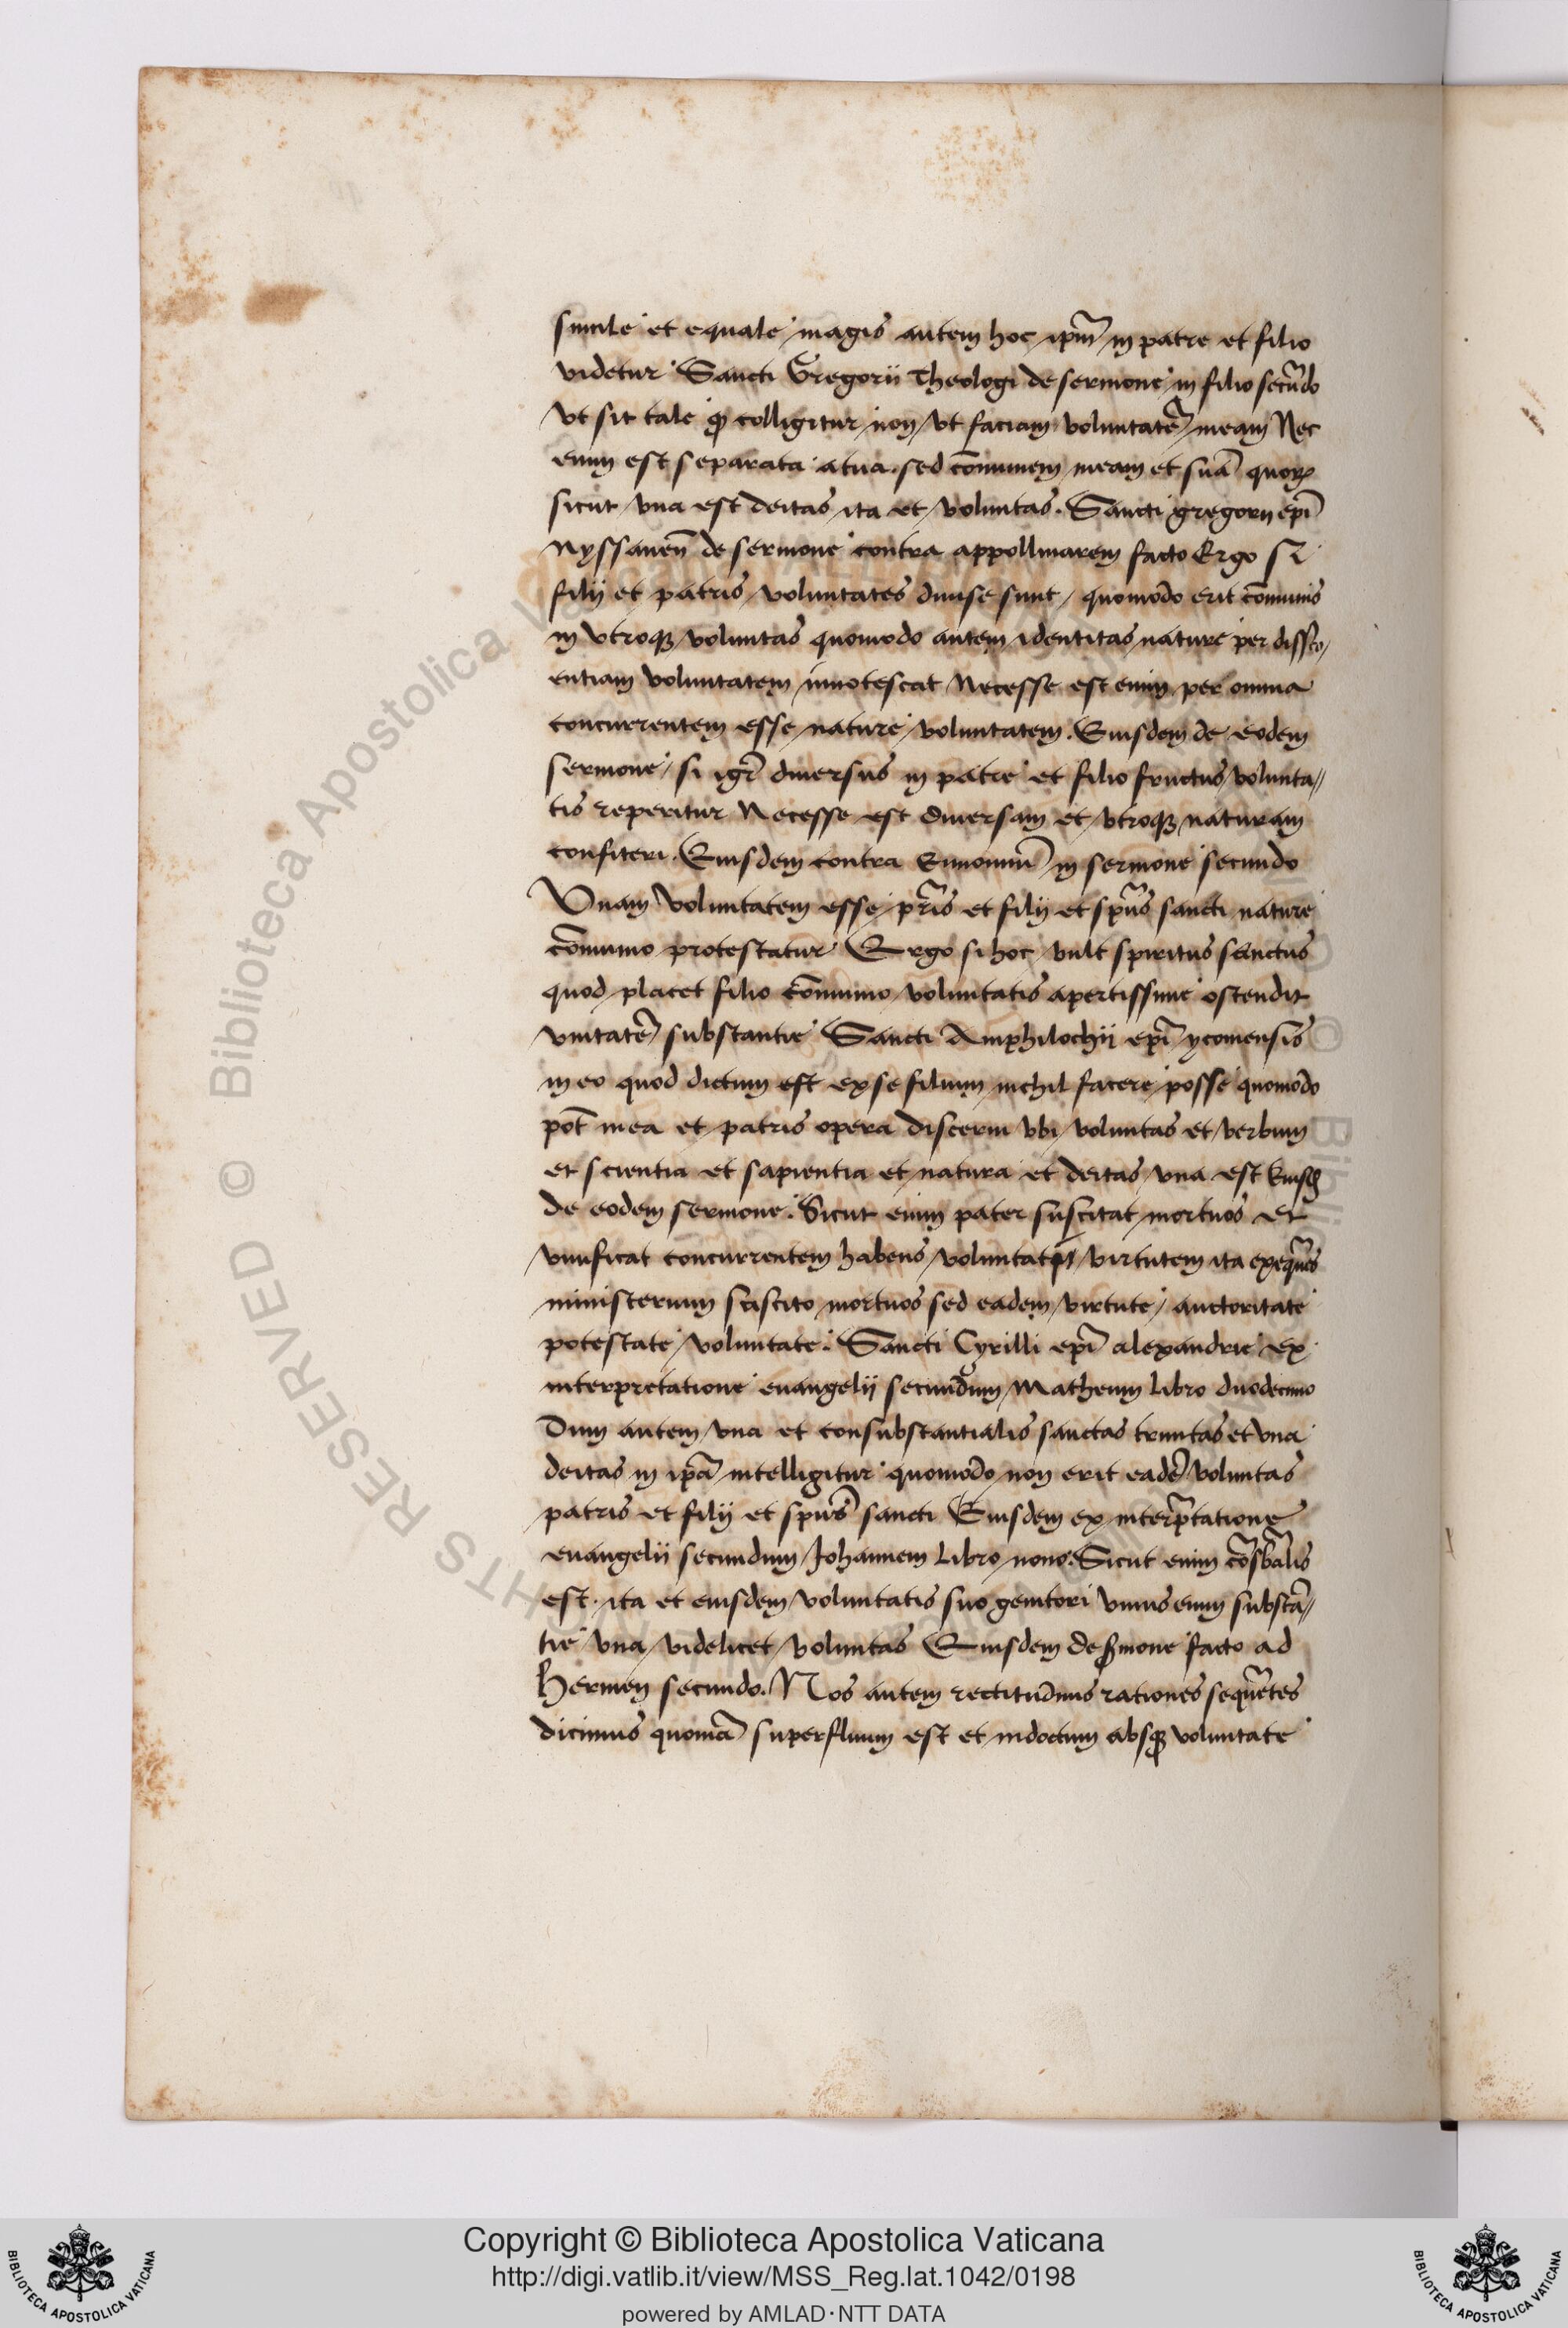 simile et equale magis autem hoc ip̄m in patre et filio
videtur Sancti Gregorii Theologi de sermone in filio secūdo
vt sit tale qd colligitur non vt faciam voluntatē meam Nec
enim est separata atua. sed cōmunem meam et suā quoꝝ
sicut vna est deitas ita et voluntas. Sancti gregorii ep̄i
Nyssaneñ de sermone contra appollinarem facto Ergo si
filij et patris voluntates diuise sunt, quomodo erit cōmunis
in vtroqꝫ voluntas quomodo autem identitas nature per
entiam voluntatem innotescat Necesse est enim per omnia
concurrentem esse nature voluntatem. Eiusdem de eodem
sermone, si igr̄ diuersus in patre et filio fructus volunta//
tis reperitur Necesse est diuersam et vtroqꝫ naturam
confiteri. Eiusdem contra Eunomiū in sermone secundo
Vnam voluntatem esse pr̄is et filij et spūs sancti nature
cōmunio protestatur Ergo si hoc vult spiritus sanctus
quod placet filio cōmunio voluntatis apertissime ostendit
vnitatē substantie Sancti Amphilochij ep̄i yconiensis
in eo quod dictum est ex se filium nichil facere posse quomodo
pot̄ mea et patris opera discerni vbi voluntas et verbum
et scientia et sapientia et natura et deitas vna est Eiusd
de eodem sermone. Sicut enim pater suscitat mortuos et
viuificat concurrentem habens voluntati virtutem ita exequēs
ministerium suscito mortuos sed eadem virtute, auctoritate
potestate voluntate. Sancti Cyrilli ep̄i alexandrie ex
interpretatione euangelij secundum Matheum libro duodecimo
Dum autem vna et consubstantialis sanctas trinitas et vna
deitas in ip̄a intelligitur quomodo non erit eadē voluntas
patris et filij et spūs sancti Eiusdem ex interp̄tatione
euangelii secundum Johannem Libro nono. Sicut enim cōsb̄alis
est. ita et eiusdem voluntatis suo genitori vnius enim substā//
tie vna videlicet voluntas Eiusdem de sermone facto ad
Hermen secundo. Nos autem rectitudinis rationes sequētes
dicimus quoniā superfluum est et indoctum absqꝫ voluntate
© Biblioteca Apostolica Vaticana
RIGHTS RESERVED
Copyright © Biblioteca Apostolica Vaticana
http://digi.vatlib.it/view/MSS_Reg.lat.1042/0198
powered by AMLAD·NTT DATA
BIBLIOTECA APOSTOLICA VATICANA
BIBLIOTECA APOSTOLICA VATICANA